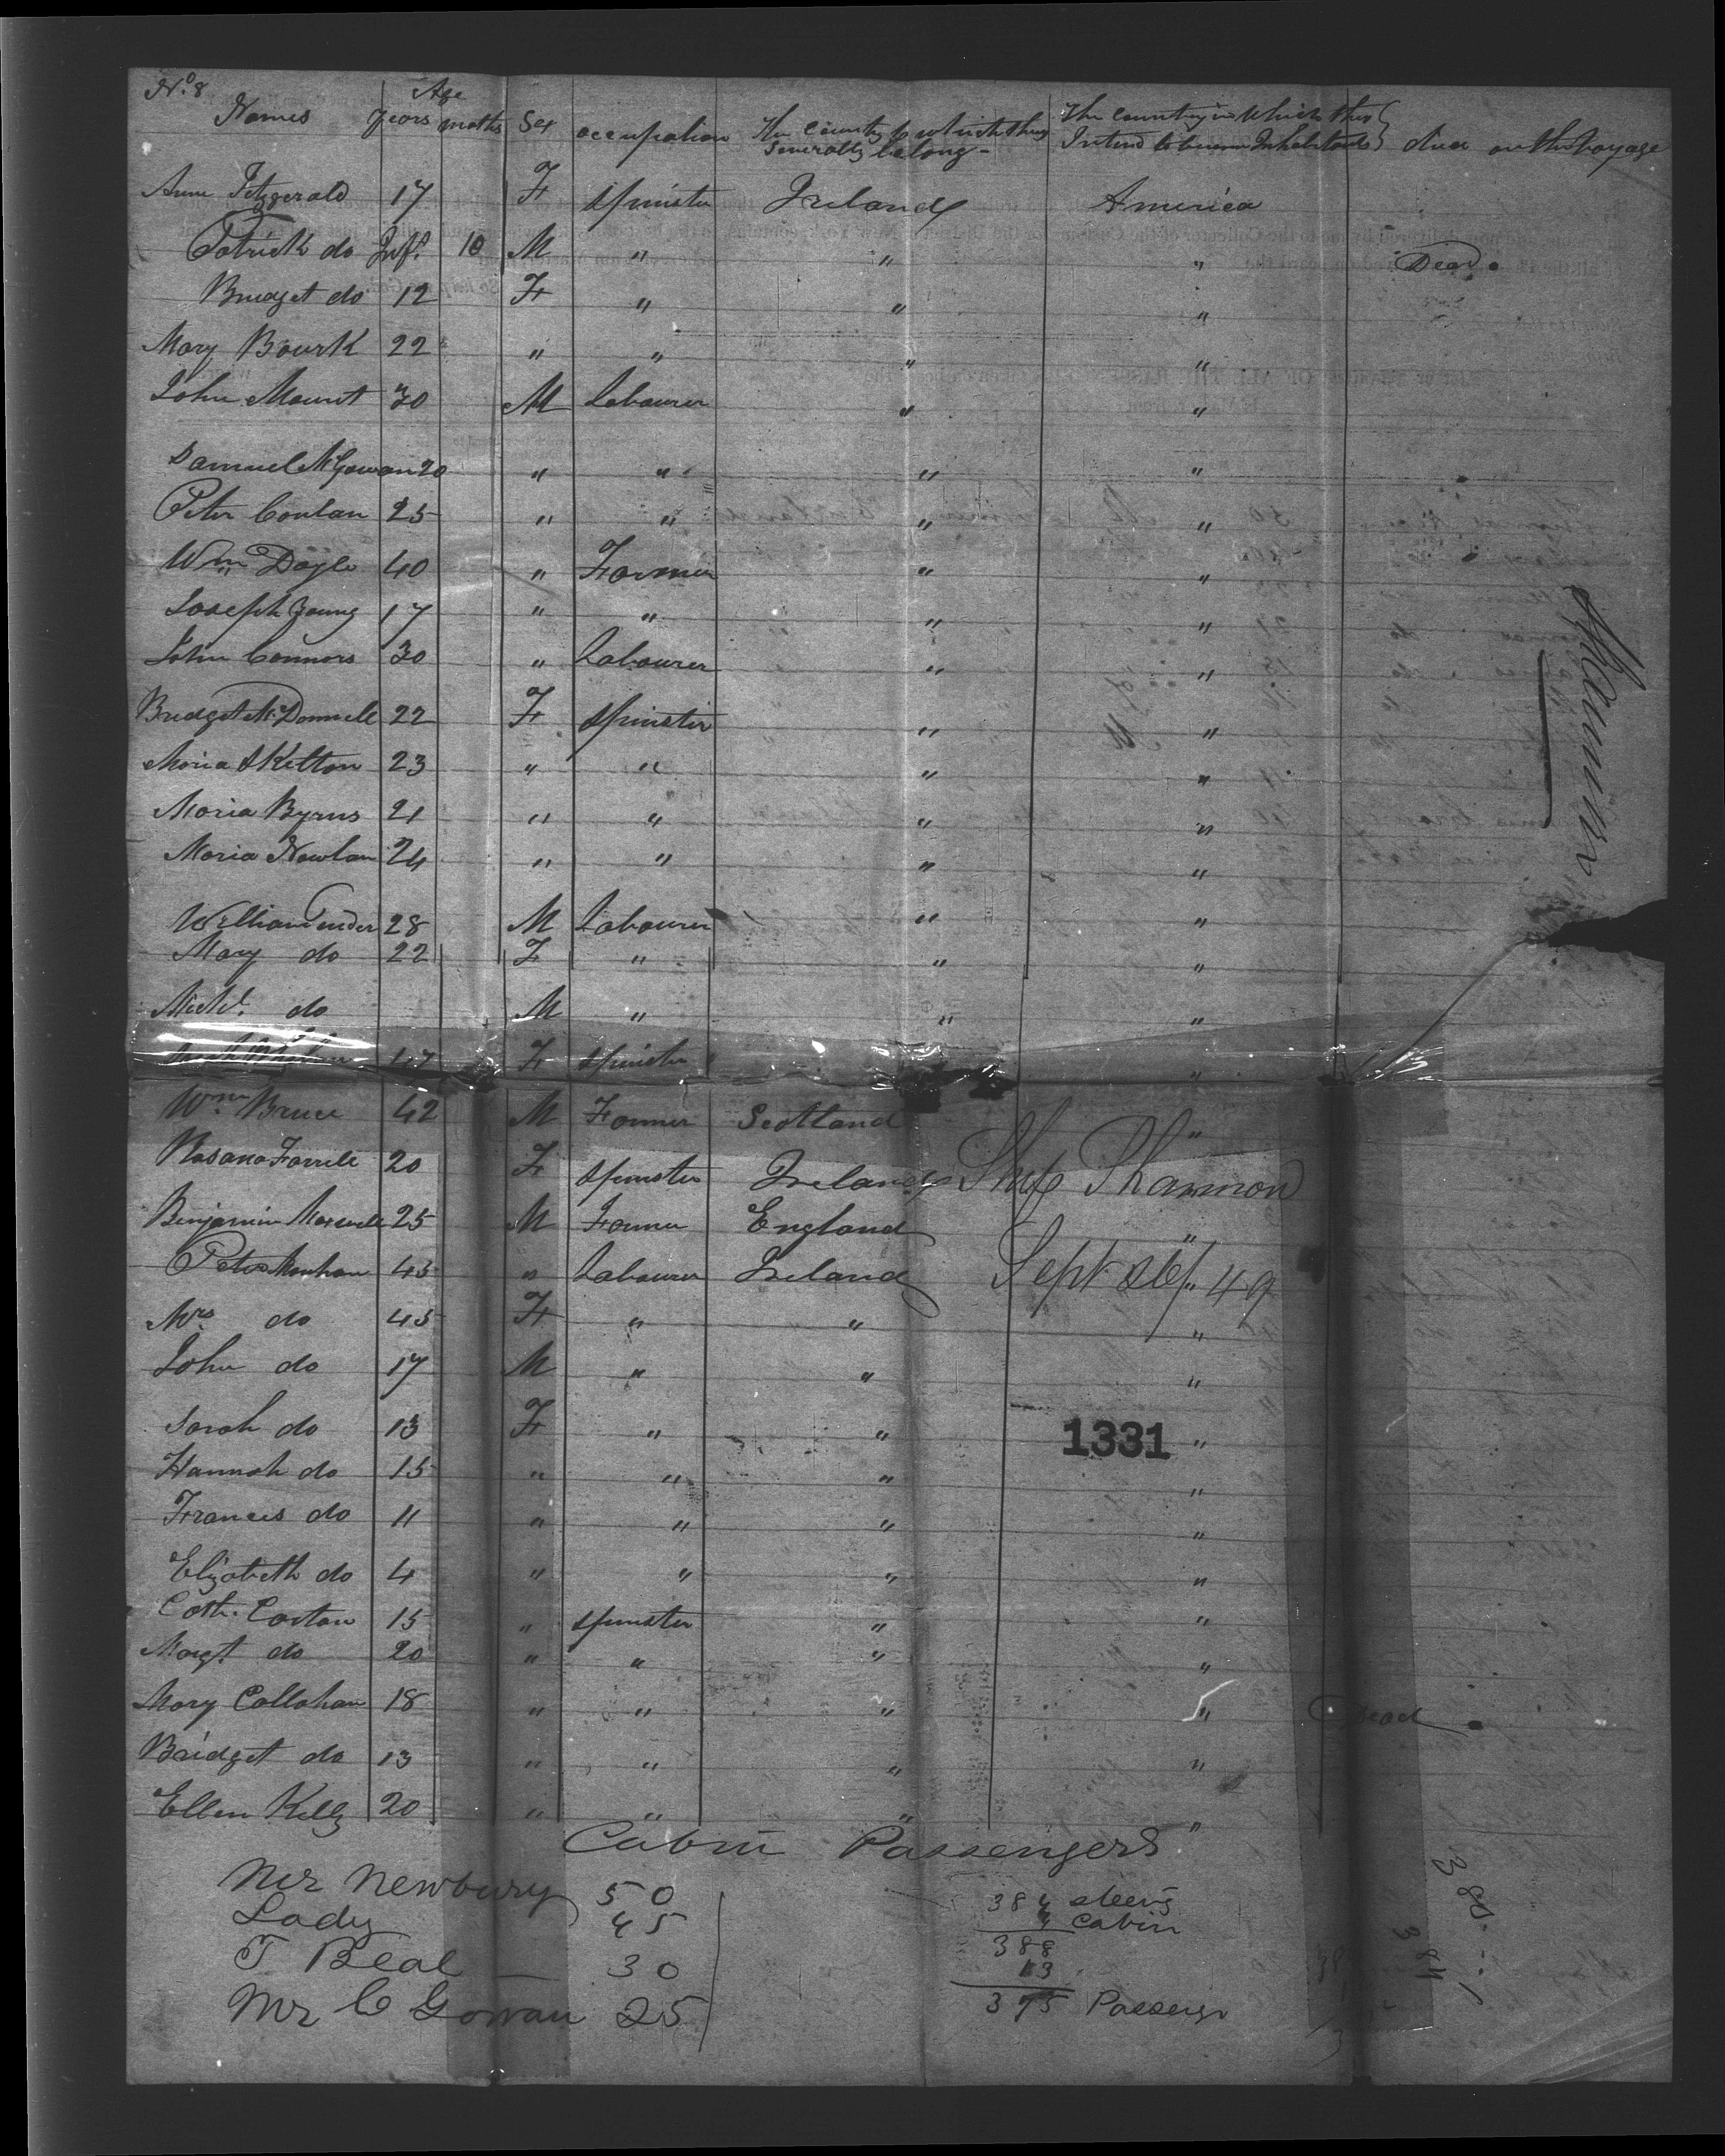 No. 8
Names Age years months Sex occupation The country to which they severally belong - The country in which they Intend to become Inhabitants died on the Voyage
Anne Fitzgerald 17 F Spinster Ireland America
Patrick do Inft. 10 M " " " Dead
Bridget do 12 F " " "
Mary Bourk 22 " " " "
John Mount 30 M Labourer " "
Samuel McGowan 20 " " " "
Peter Conlan 25 " " " "
Wm Doyle 40 " Farmer " "
Joseph Young 17 " " " "
John Connors 30 " Labourer " "
Bridget McDonnell 22 F Spinster " "
Maria Skelton 23 " " " "
Maria Byrns 21 " " " "
Maria Nowlan 24 " " " "
William 28 M Labourer " "
Mary do 22 F " " "
Michl. do M " " "
17 F Spinster "
Wm Bruce 42 M Farmer Scotland "
Rosana Farrell 20 F Spinster Ireland Ship Shannon
Benjamin Maxwell 25 M Farmer England "
Peter 45 " Labourer Ireland Sept 49
Mrs. do 45 F " " "
John do 17 M " " "
Sarah do 13 F " " 1331 "
Hannah do 15 " " " "
Frances do 11 " " " "
Elizabeth do 4 " " " "
Cath. Costan 15 " Spinster " "
Margt do 20 " " " "
Mary Callahan 18 " " " " Dead
Bridget do 13 " " " "
Ellen Kelly 20 " " " "
Cabin Passengers
Mr Newbury 50
Lady 45
T Beal 30
Mr C Gowan 25
384 steerg
4 Cabin
388
13
375 Passengr
Shannon
388
384